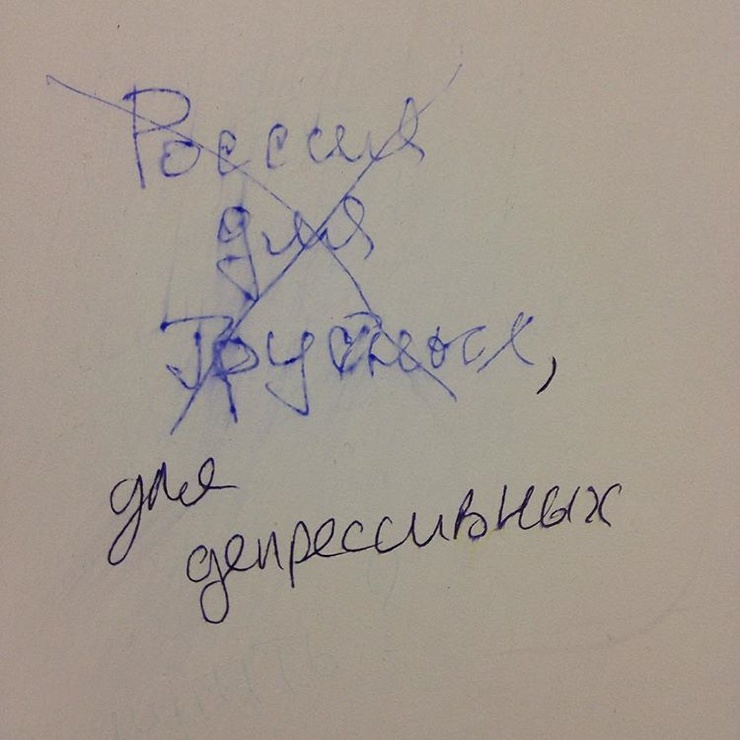 Россия
для
Грустных,
для
депрессивных